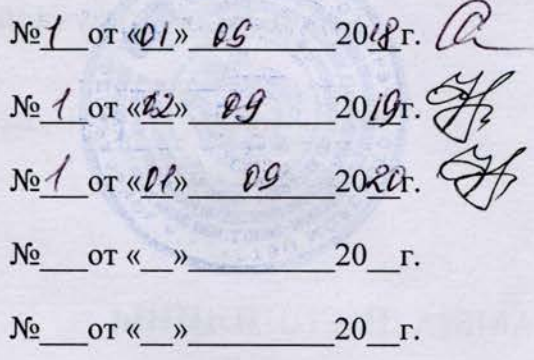 № 1 от «01» 09 2018г.
№ 1 от «02» 09 2019г.
№ 1 от «01» 09 2020г.
№___от «__»__________20__г.
№___от «__»__________20__г.